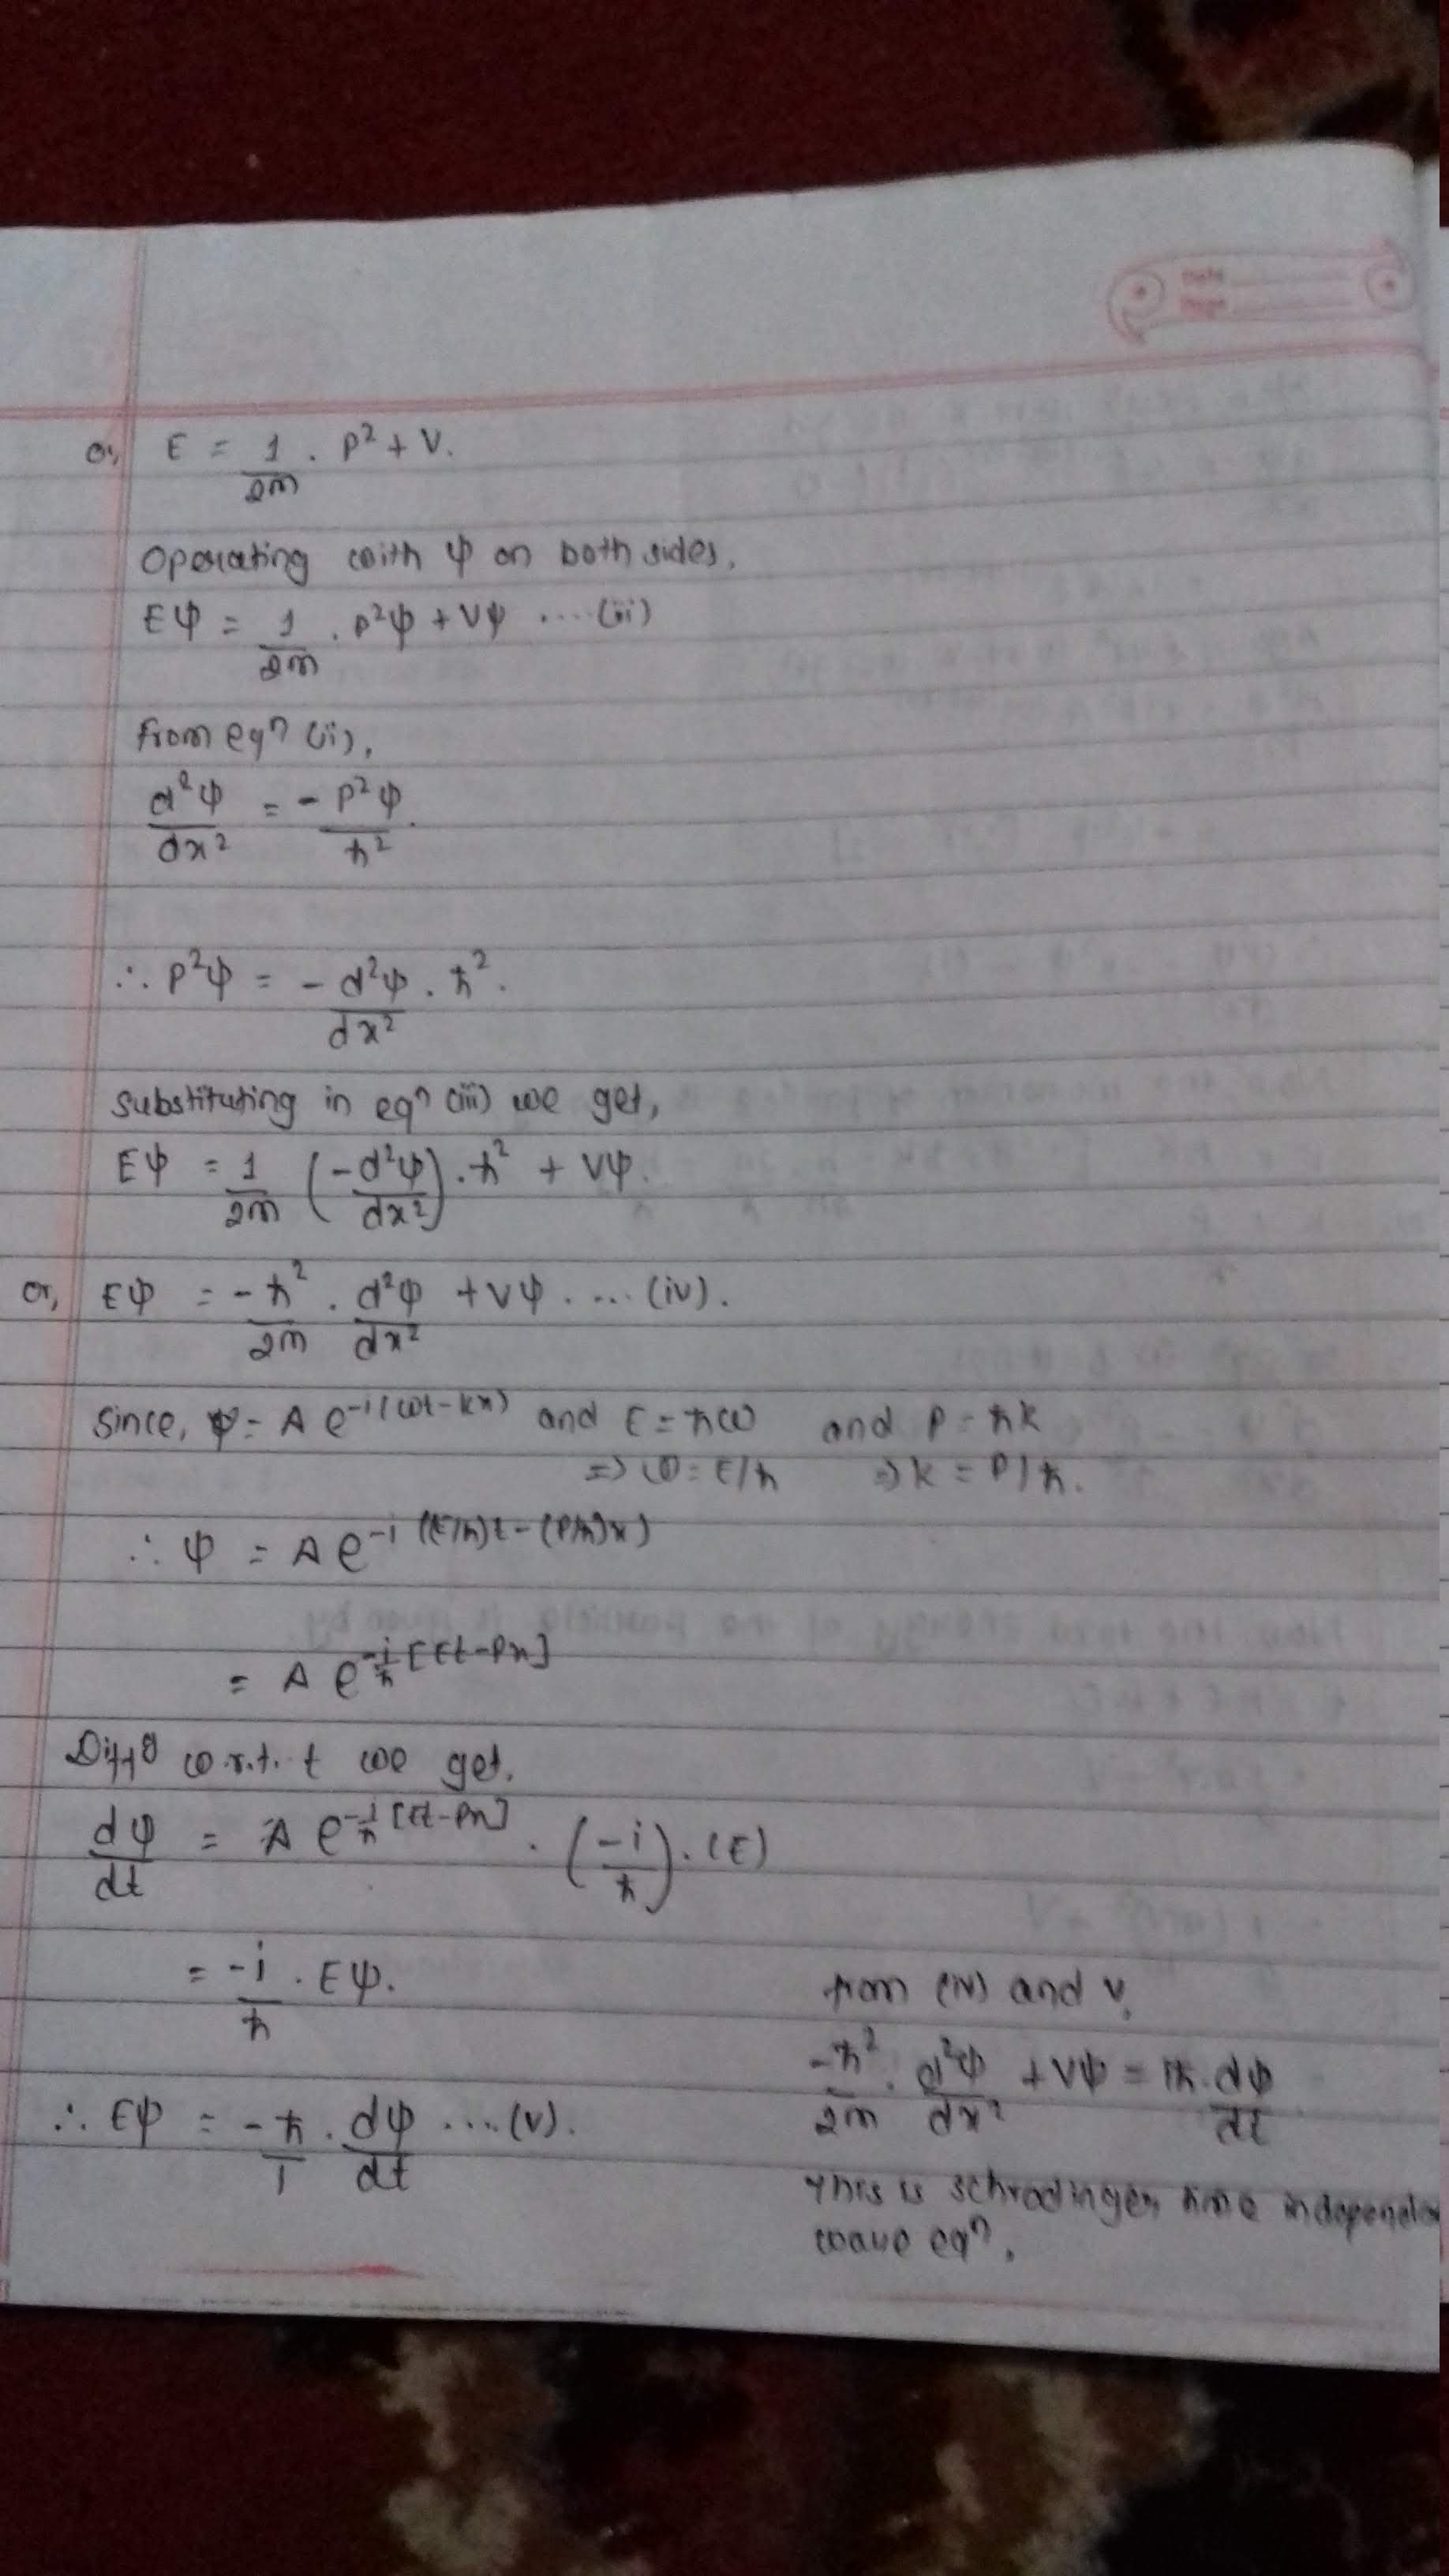 or, E = 1/2m . P² + V.
Operating with ψ on both sides,
Eψ = 1/2m . P²ψ + Vψ .... (iii)
from eqⁿ (ii),
d²ψ/dx² = - P²ψ/ħ².
∴ P²ψ = - d²ψ/dx² . ħ².
Substituting in eqⁿ (iii) we get,
Eψ = 1/2m (-d²ψ/dx²) . ħ² + Vψ.
or, Eψ = -ħ²/2m . d²ψ/dx² + Vψ. ... (iv).
Since, ψ = A e^-i(ωt-kx) and E = ħω and P = ħk
⇒ ω = E/ħ ⇒ k = P/ħ.
∴ ψ = A e^-i((E/ħ)t-(P/ħ)x)
= A e^-i/ħ[Et-Px]
Diffg w.r.t. t we get.
dψ/dt = A e^-i/ħ[Et-Px] . (-i/ħ) . (E)
= -i/ħ . Eψ.
∴ Eψ = -ħ/i . dψ/dt ....(v).
from (iv) and v,
-ħ²/2m . d²ψ/dx² + Vψ = iħ . dψ/dt
This is schrodinger time independe
wave eqⁿ.